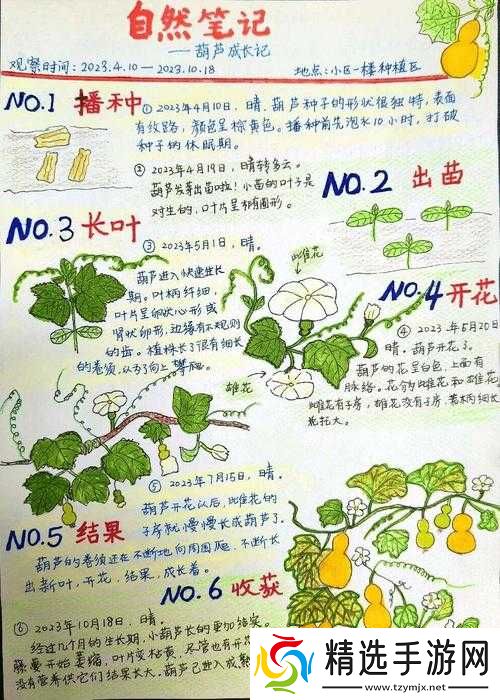 自然笔记
——葫芦成长记
观察时间：2023.4.10—2023.10.18
地点：小区一楼种植区
NO.1 播种
① 2023年4月10日，晴。葫芦种子的形状很独特，表面
有纹路，颜色呈棕黄色。播种前先泡水10小时，打破
种子的休眠期。
② 2023年4月19日，晴转多云。
葫芦发芽出苗啦！小苗的叶子是
对生的，叶片呈卵圆形。
NO.2 出苗
NO.3 长叶
③ 2023年5月1日，晴。
葫芦进入快速生长
期。叶柄纤细，
叶片呈卵状心形或
肾状卵形，边缘有不规则
的齿。植株长了很有细长
的卷须，从下向上攀爬。
雌花
雄花
NO.4 开花
④ 2023年5月20日
晴。葫芦开花了。
葫芦的花呈白色，上面有
脉络。花分雌花和雄花
雌花有子房，雄花没有子房，花柄细长
NO.5 结果
⑤ 2023年7月15日，晴。
葫芦开花以后，雌花的
子房就慢慢长成葫芦了。
葫芦的卷须还在不断地向周围爬，不断长
出新叶，开花，结果，成长着。
NO.6 收获
⑥ 2023年10月18日，晴。
经过几个月的生长期，小葫芦长的更加结实。
藤蔓开始萎缩，叶片变枯黄，尽管也有开花
没有营养供它们结果长大。葫芦已进入成熟
精选手游网
www.tzymjx.net